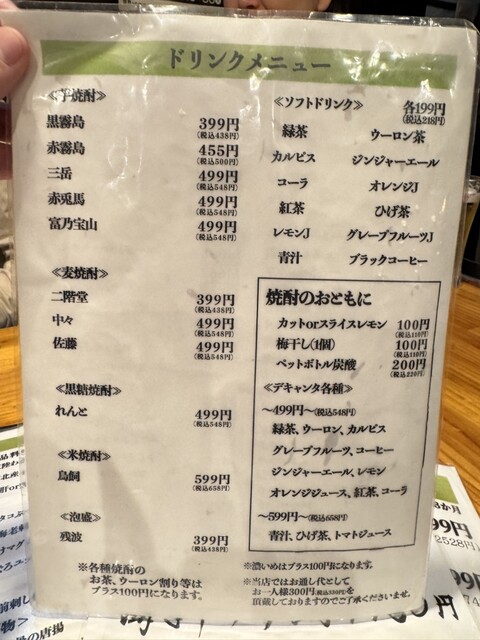 ドリンクメニュー
≪芋焼酎≫
黒霧島 399円
(税込438円)
赤霧島 455円
(税込500円)
三岳 499円
(税込548円)
赤兎馬 499円
(税込548円)
富乃宝山 499円
(税込548円)
≪麦焼酎≫
二階堂 399円
(税込438円)
中々 499円
(税込548円)
佐藤 499円
(税込548円)
≪黒糖焼酎≫
れんと 499円
(税込548円)
≪米焼酎≫
鳥飼 599円
(税込658円)
≪泡盛≫
残波 399円
(税込438円)
※各種焼酎の
お茶、ウーロン割り等は
プラス100円になります。
≪ソフトドリンク≫ 各199円
(税込218円)
緑茶 ウーロン茶
カルピス ジンジャーエール
コーラ オレンジJ
紅茶 ひげ茶
レモンJ グレープフルーツJ
青汁 ブラックコーヒー
焼酎のおともに
カットorスライスレモン 100円
(税込110円)
梅干し(1個) 100円
(税込110円)
ペットボトル炭酸 200円
(税込220円)
≪デキャンタ各種≫
〜499円〜(税込548円)
緑茶、ウーロン、カルピス
グレープフルーツ、コーヒー
ジンジャーエール、レモン
オレンジジュース、紅茶、コーラ
〜599円〜(税込658円)
青汁、ひげ茶、トマトジュース
※濃いめはプラス100円になります。
※当店ではお通し代として
お一人様300円(税込330円)を
頂戴しておりますのでご了承くださいませ。